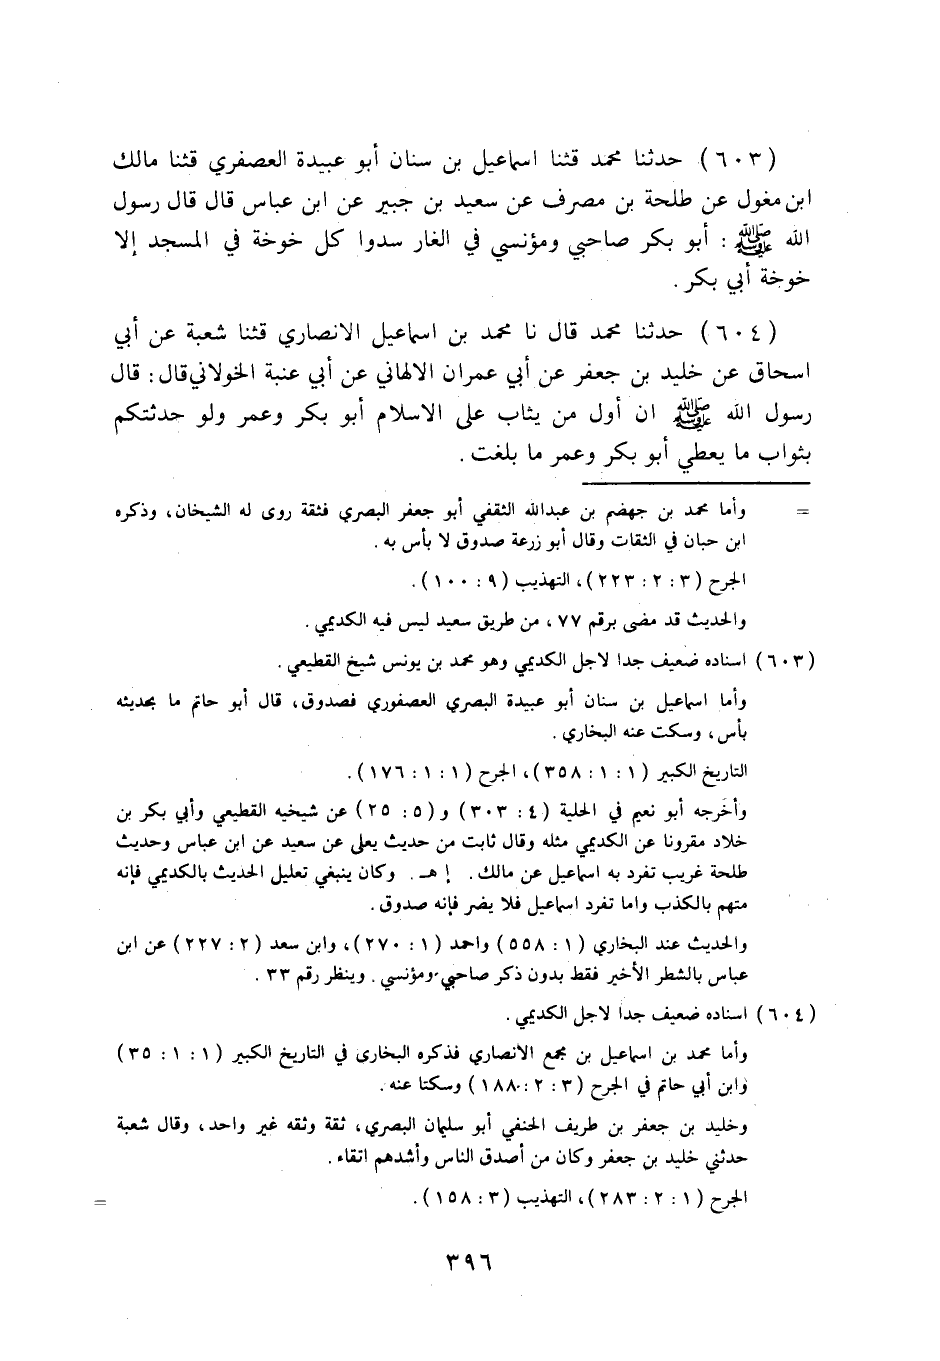 (٦٠٣) حدثنا محمد قثنا اسماعيل بن سنان أبو عبيدة العصفري قثنا مالك
ابن مغول عن طلحة بن مصرف عن سعيد بن جبير عن ابن عباس قال قال رسول
الله ﷺ : أبو بكر صاحبي ومؤنسي في الغار سدوا كل خوخة في المسجد إلا
خوخة أبي بكر .
(٦٠٤) حدثنا محمد قال نا محمد بن اسماعيل الانصاري قثنا شعبة عن أبي
اسحاق عن خليد بن جعفر عن أبي عمران الالهاني عن أبي عنبة الخولاني قال : قال
رسول الله ﷺ ان أول من يثاب على الاسلام أبو بكر وعمر ولو حدثتكم
بثواب ما يعطي أبو بكر وعمر ما بلغت .
= وأما محمد بن جهضم بن عبدالله الثقفي أبو جعفر البصري فثقة روى له الشيخان ، وذكره
ابن حبان في الثقات وقال أبو زرعة صدوق لا بأس به .
الجرح (٣ : ٢ : ٢٢٣) ، التهذيب (٩ : ١٠٠) .
والحديث قد مضى برقم ٧٧ ، من طريق سعيد ليس فيه الكديمي .
(٦٠٣) اسناده ضعيف جدا لاجل الكديمي وهو محمد بن يونس شيخ القطيعي .
وأما اسماعيل بن سنان أبو عبيدة البصري العصفوري فصدوق ، قال أبو حاتم ما بحديثه
بأس ، وسكت عنه البخاري .
التاريخ الكبير (١ : ١ : ٣٥٨) ، الجرح (١ : ١ : ١٧٦) .
وأخرجه أبو نعيم في الحلية (٤ : ٣٠٣) و (٥ : ٢٥) عن شيخيه القطيعي وأبي بكر بن
خلاد مقرونا عن الكديمي مثله وقال ثابت من حديث يعلى عن سعيد عن ابن عباس وحديث
طلحة غريب تفرد به اسماعيل عن مالك . إ هـ . وكان ينبغي تعليل الحديث بالكديمي فإنه
متهم بالكذب واما تفرد اسماعيل فلا يضر فإنه صدوق .
والحديث عند البخاري (١ : ٥٥٨) واحمد (١ : ٢٧٠) ، وابن سعد (٢ : ٢٢٧) عن ابن
عباس بالشطر الأخير فقط بدون ذكر صاحبي ومؤنسي . وينظر رقم ٣٣ .
(٦٠٤) اسناده ضعيف جدا لاجل الكديمي .
وأما محمد بن اسماعيل بن مجمع الانصاري فذكره البخارى في التاريخ الكبير (١ : ١ : ٣٥)
وابن أبي حاتم في الجرح (٣ : ٢ : ١٨٨) وسكتا عنه .
وخليد بن جعفر بن طريف الحنفي أبو سليمان البصري ، ثقة وثقه غير واحد ، وقال شعبة
حدثني خليد بن جعفر وكان من أصدق الناس وأشدهم اتقاء .
الجرح (١ : ٢ : ٢٨٣) ، التهذيب (٣ : ١٥٨) . =
٣٩٦